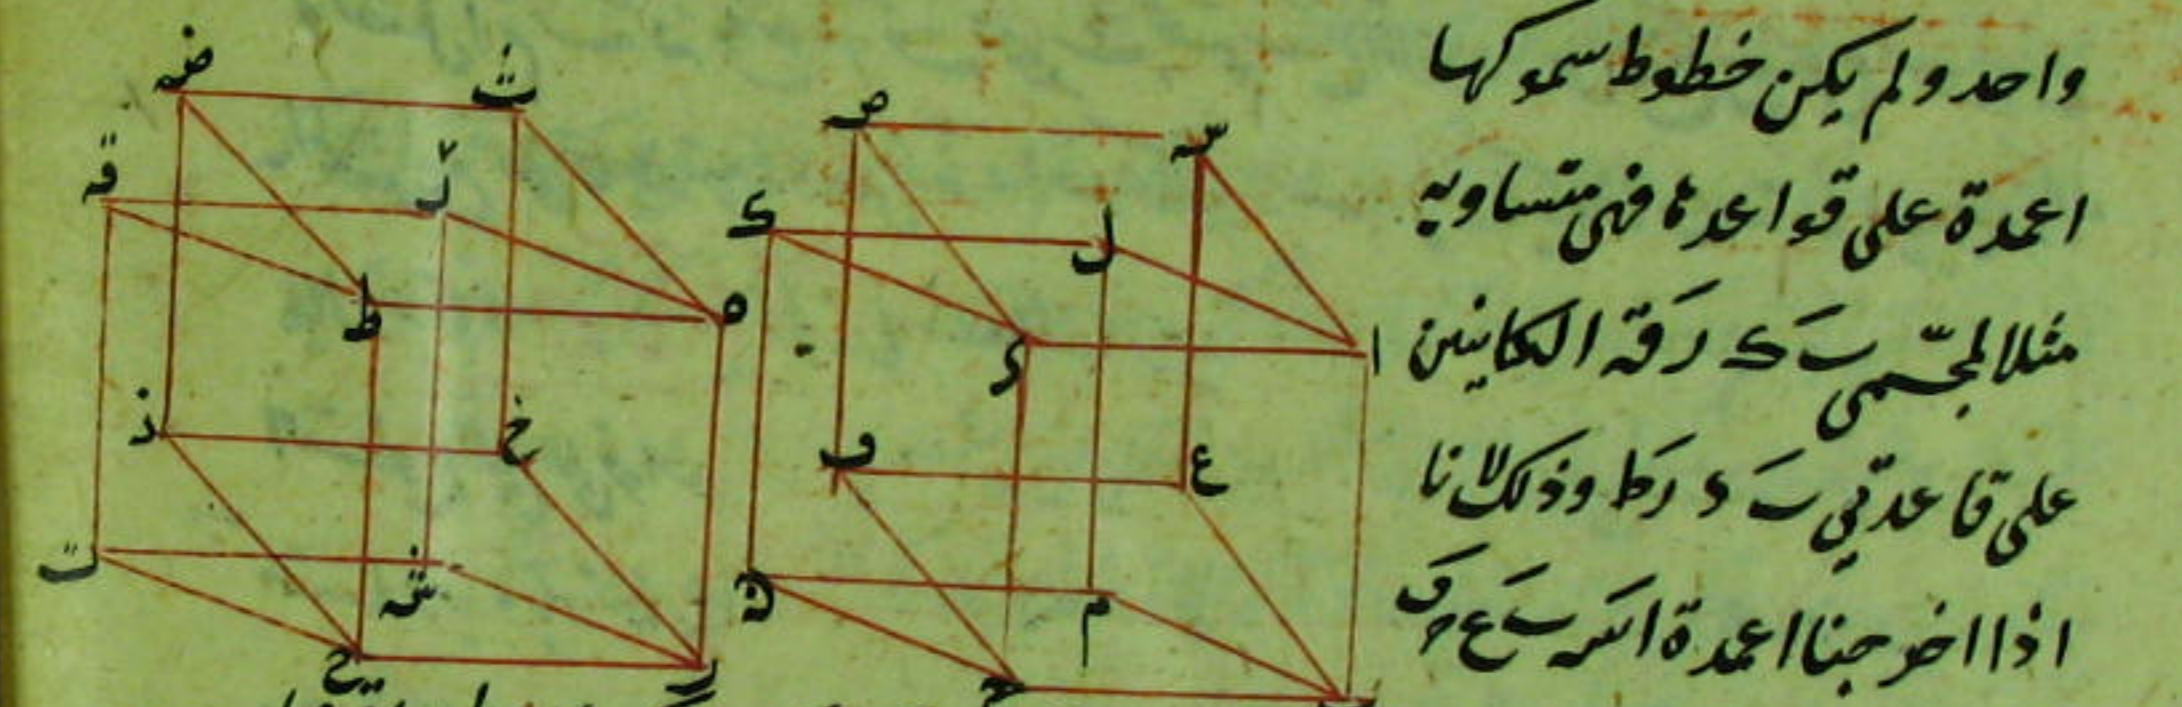 واحد ولم يكن خطوط سموكها
اعمدة على قواعدها فهى متساوية
مثلا لمجسمى ب ك ر ق الكاينين
على قاعدتي ب د ر ط وذلك لانا
اذا اخرجنا اعمدة ا س ب ع ح ف
ض ث ص س
ق ل ك ل
ط ه د ا
ذ خ ف ع
ت ش ن م
ح ر ح